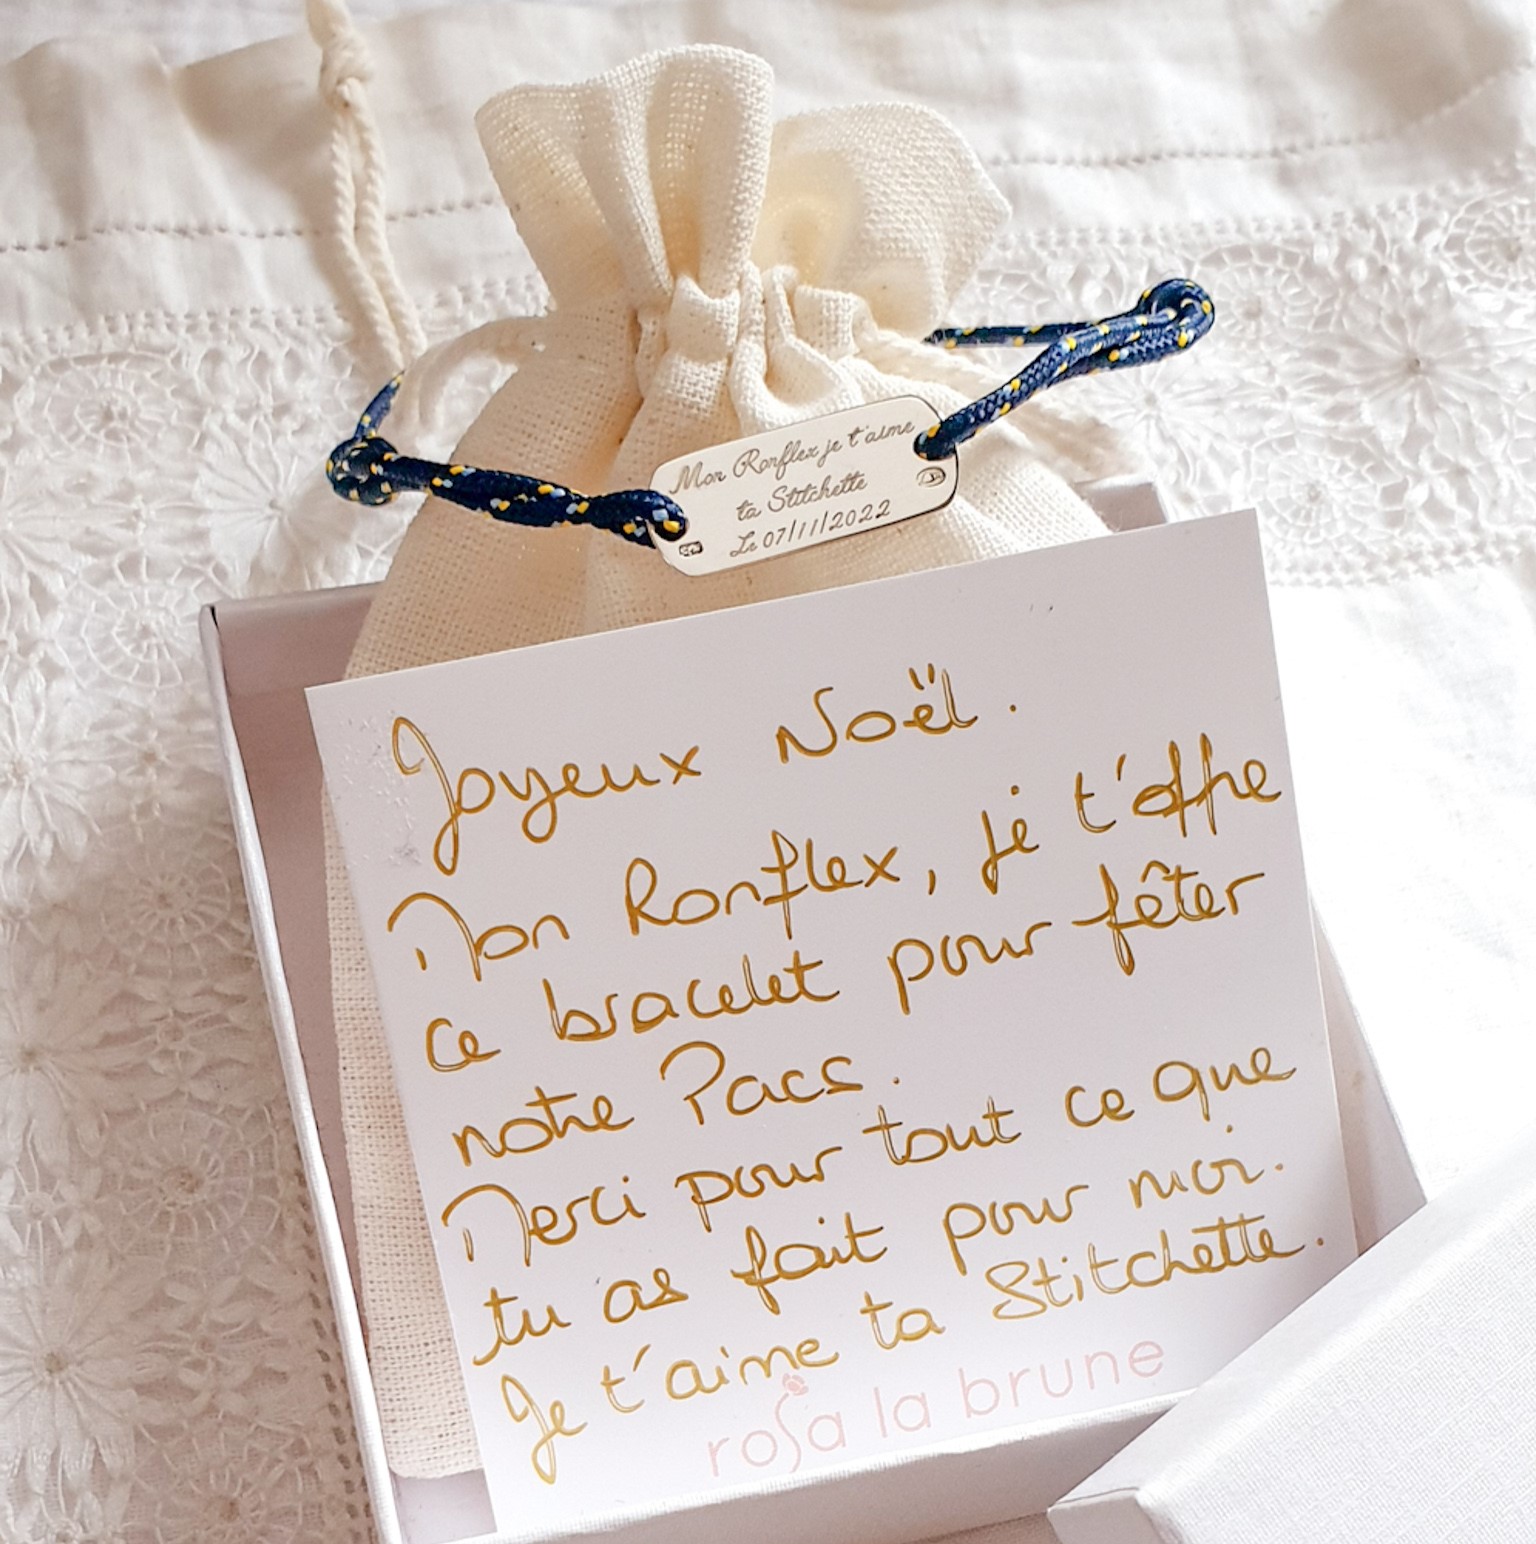 Mon Ronflex je t'aime
ta Stitchette
Le 07/11/2022
Joyeux Noël.
Mon Ronflex, je t'offre
ce bracelet pour fêter
notre Pacs.
Merci pour tout ce que
tu as fait pour moi.
Je t'aime ta Stitchette.
rosa la brune